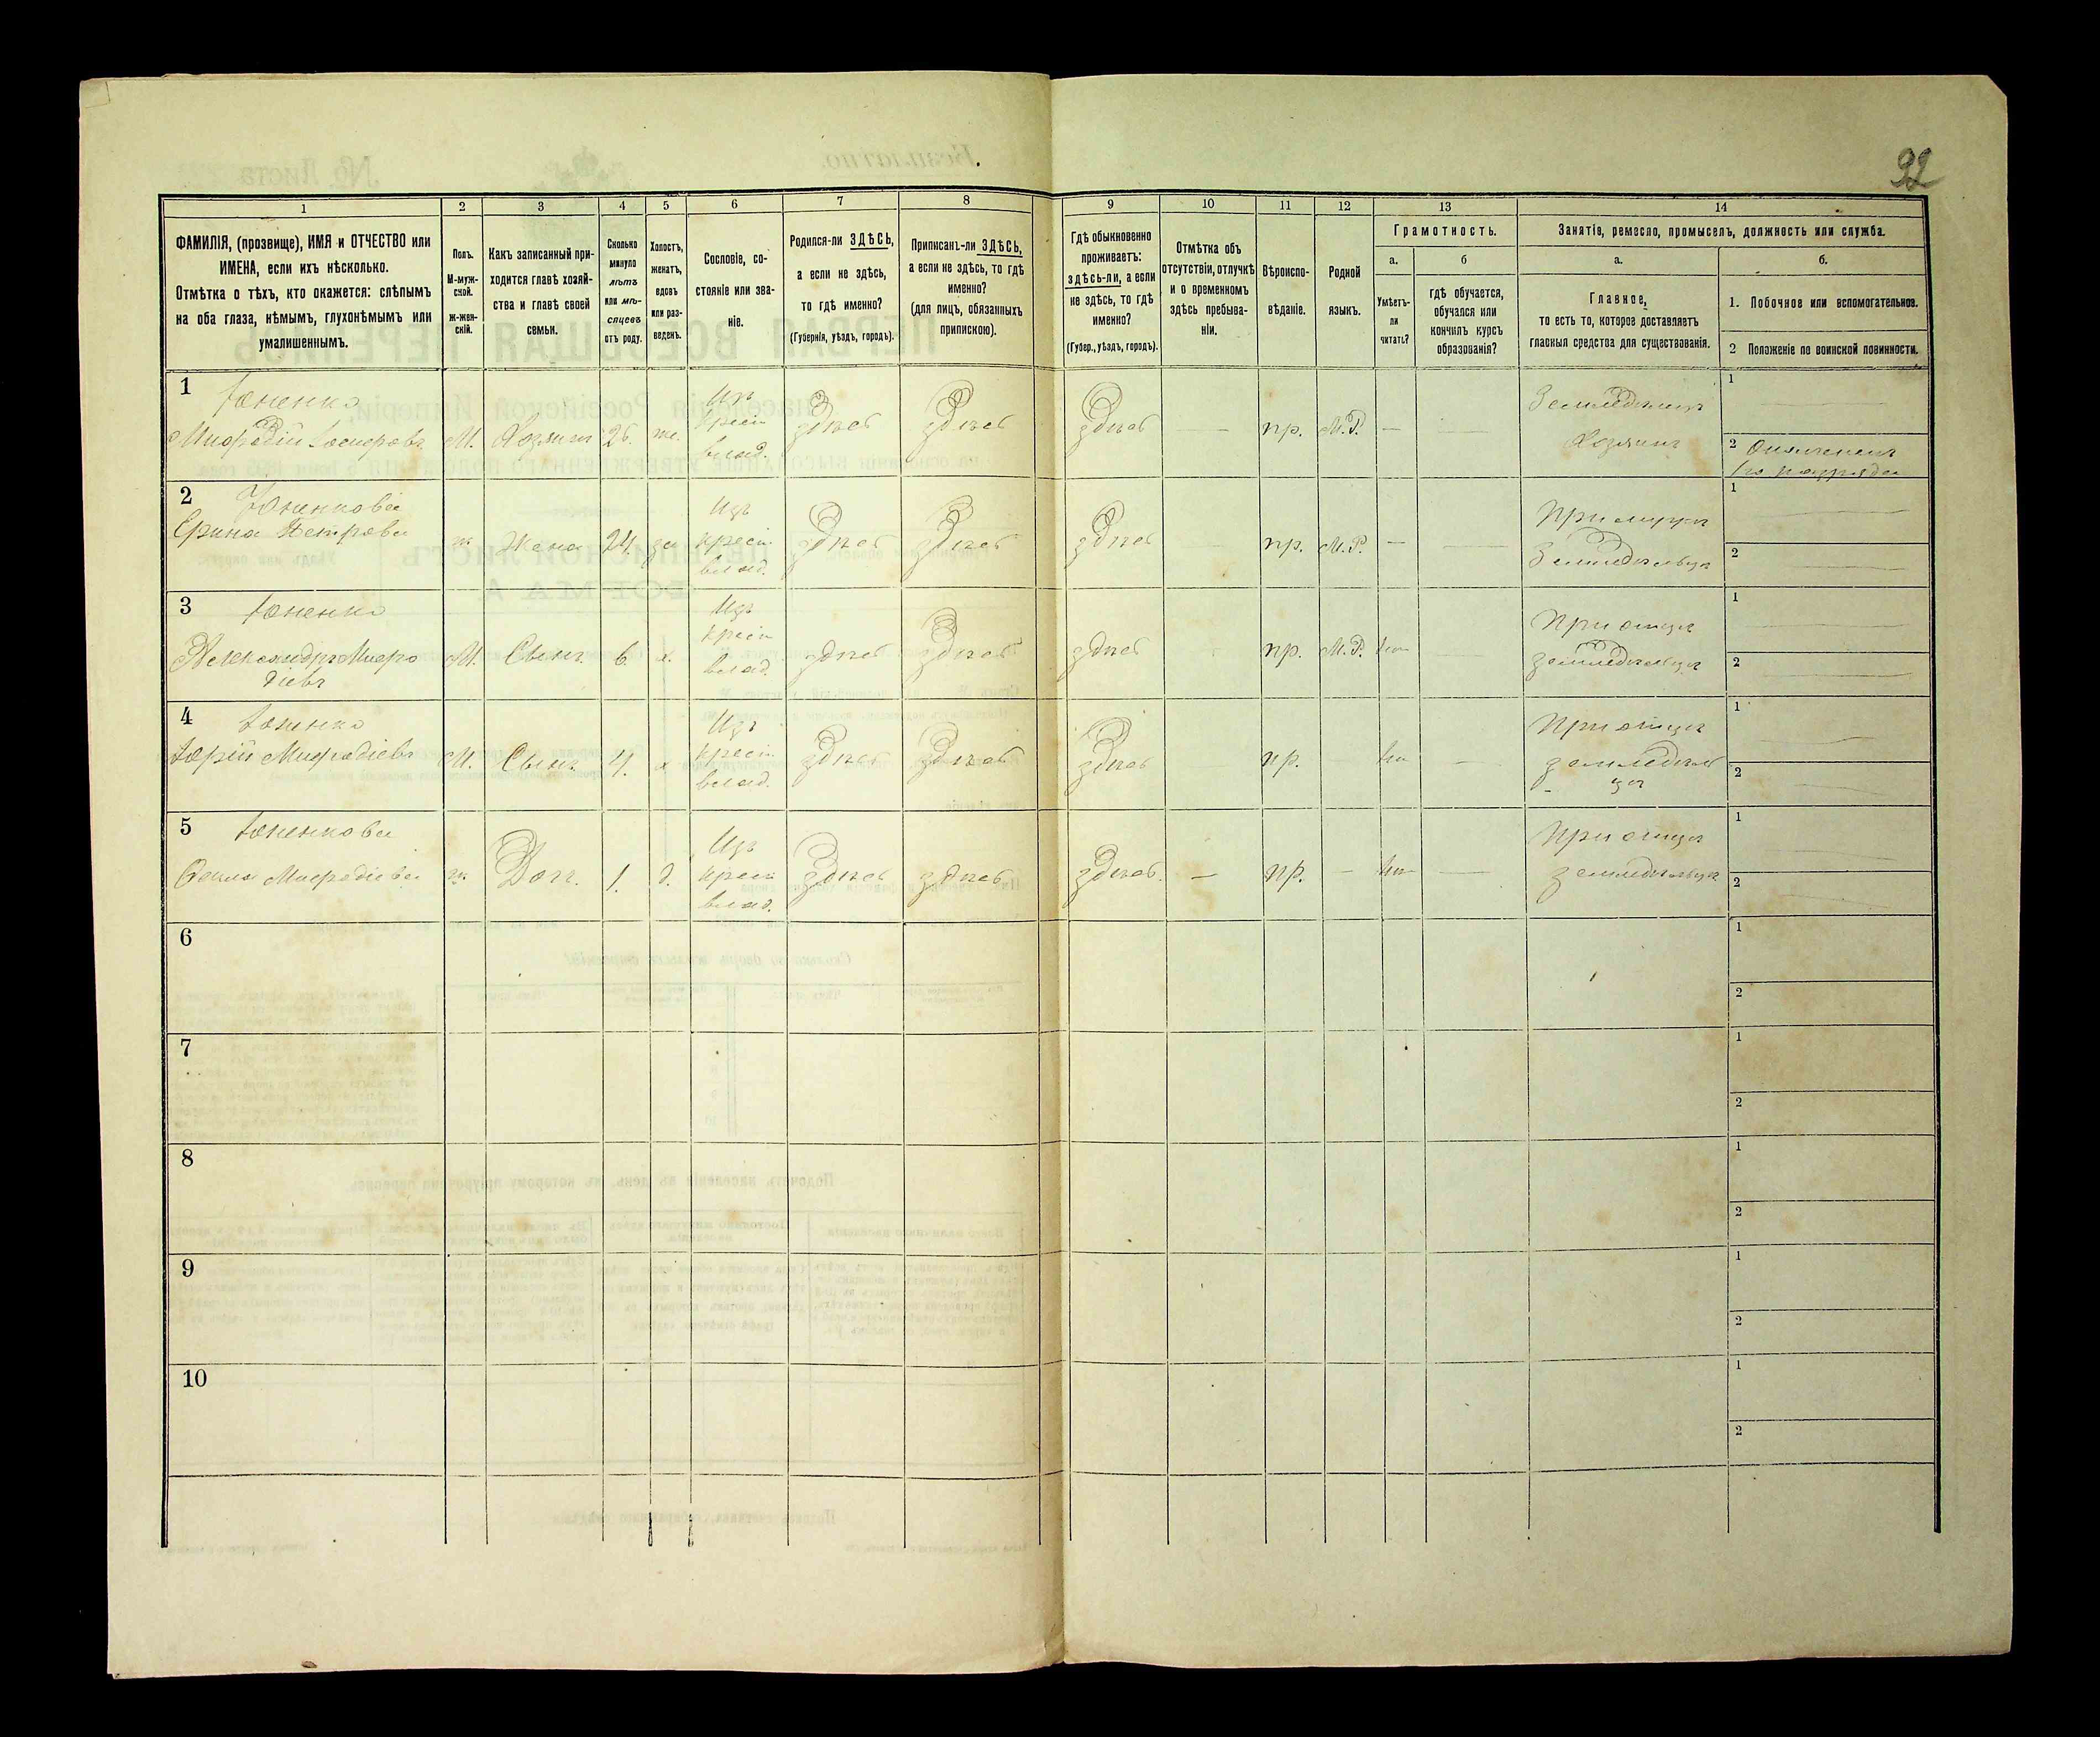 92
1 2 3 4 5 6 7 8 9 10 11 12 13 14
ФАМИЛІЯ, (прозвище), ИМЯ и ОТЧЕСТВО или
ИМЕНА, если ихъ нѣсколько.
Отмѣтка о тѣхъ, кто окажется: слѣпымъ
на оба глаза, нѣмымъ, глухонѣмымъ или
умалишеннымъ.
Полъ.
М-муж-
ской.
ж-жен-
скій.
Какъ записанный при-
ходится главѣ хозяй-
ства и главѣ своей
семьи.
Сколько
минуло
лѣтъ
или мѣ-
сяцевъ
отъ роду.
Холостъ,
женатъ,
вдовъ
или раз-
веденъ.
Сословіе, со-
стояніе или зва-
ніе.
Родился-ли ЗДѢСЬ,
а если не здѣсь,
то гдѣ именно?
(Губернія, уѣздъ, городъ).
Приписанъ-ли ЗДѢСЬ,
а если не здѣсь, то гдѣ
именно?
(для лицъ, обязанныхъ
припискою).
Гдѣ обыкновенно
проживаетъ:
здѣсь-ли, а если
не здѣсь, то гдѣ
именно?
(Губер., уѣздъ, городъ).
Отмѣтка объ
отсутствіи, отлучкѣ
и о временномъ
здѣсь пребыва-
ніи.
Вѣроиспо-
вѣданіе.
Родной
языкъ.
Грамотность.
а.
Умѣетъ-
ли
читать?
б
гдѣ обучается,
обучался или
кончилъ курсъ
образованія?
Занятіе, ремесло, промыселъ, должность или служба.
а.
Главное,
то есть то, которое доставляетъ
главныя средства для существованія.
б.
1. Побочное или вспомогательное.
2 Положеніе по воинской повинности.
1
Юненко
М.
Хозяинъ
26.
же.
Изъ
крест
влад.
здѣсь
здѣсь
здѣсь
—
пр.
М.Р.
—
—
Земледѣлецъ
Хозяинъ
1
2 Ополченецъ
1го разряда
2
Юненкова
Петрова
ж
Жена
24.
за
Изъ
крест
влад.
здѣсь
здѣсь
здѣсь
пр.
М.Р.
—
—
При мужѣ
Земледѣльцѣ
1
2
3
Юненко
Александръ Мефо
діевъ
М.
Сынъ
6.
х.
Изъ
крест
влад.
здѣсь
здѣсь
здѣсь
пр.
М.Р.
При отцѣ
земледѣльцѣ
1
2
4
Юненко
Юрій Мефодіевъ
М.
Сынъ
4.
х
Изъ
крест
влад.
здѣсь
здѣсь
здѣсь
пр.
—
При отцѣ
земледѣль
цѣ
1
2
5
Юненкова
Мефодіева
ж.
Доч.
1.
д.
Изъ
крест
влад.
здѣсь
здѣсь
здѣсь.
—
пр.
—
—
При отцѣ
земледѣльцѣ
1
2
6
1
2
7
1
2
8
1
2
9
1
2
10
1
2